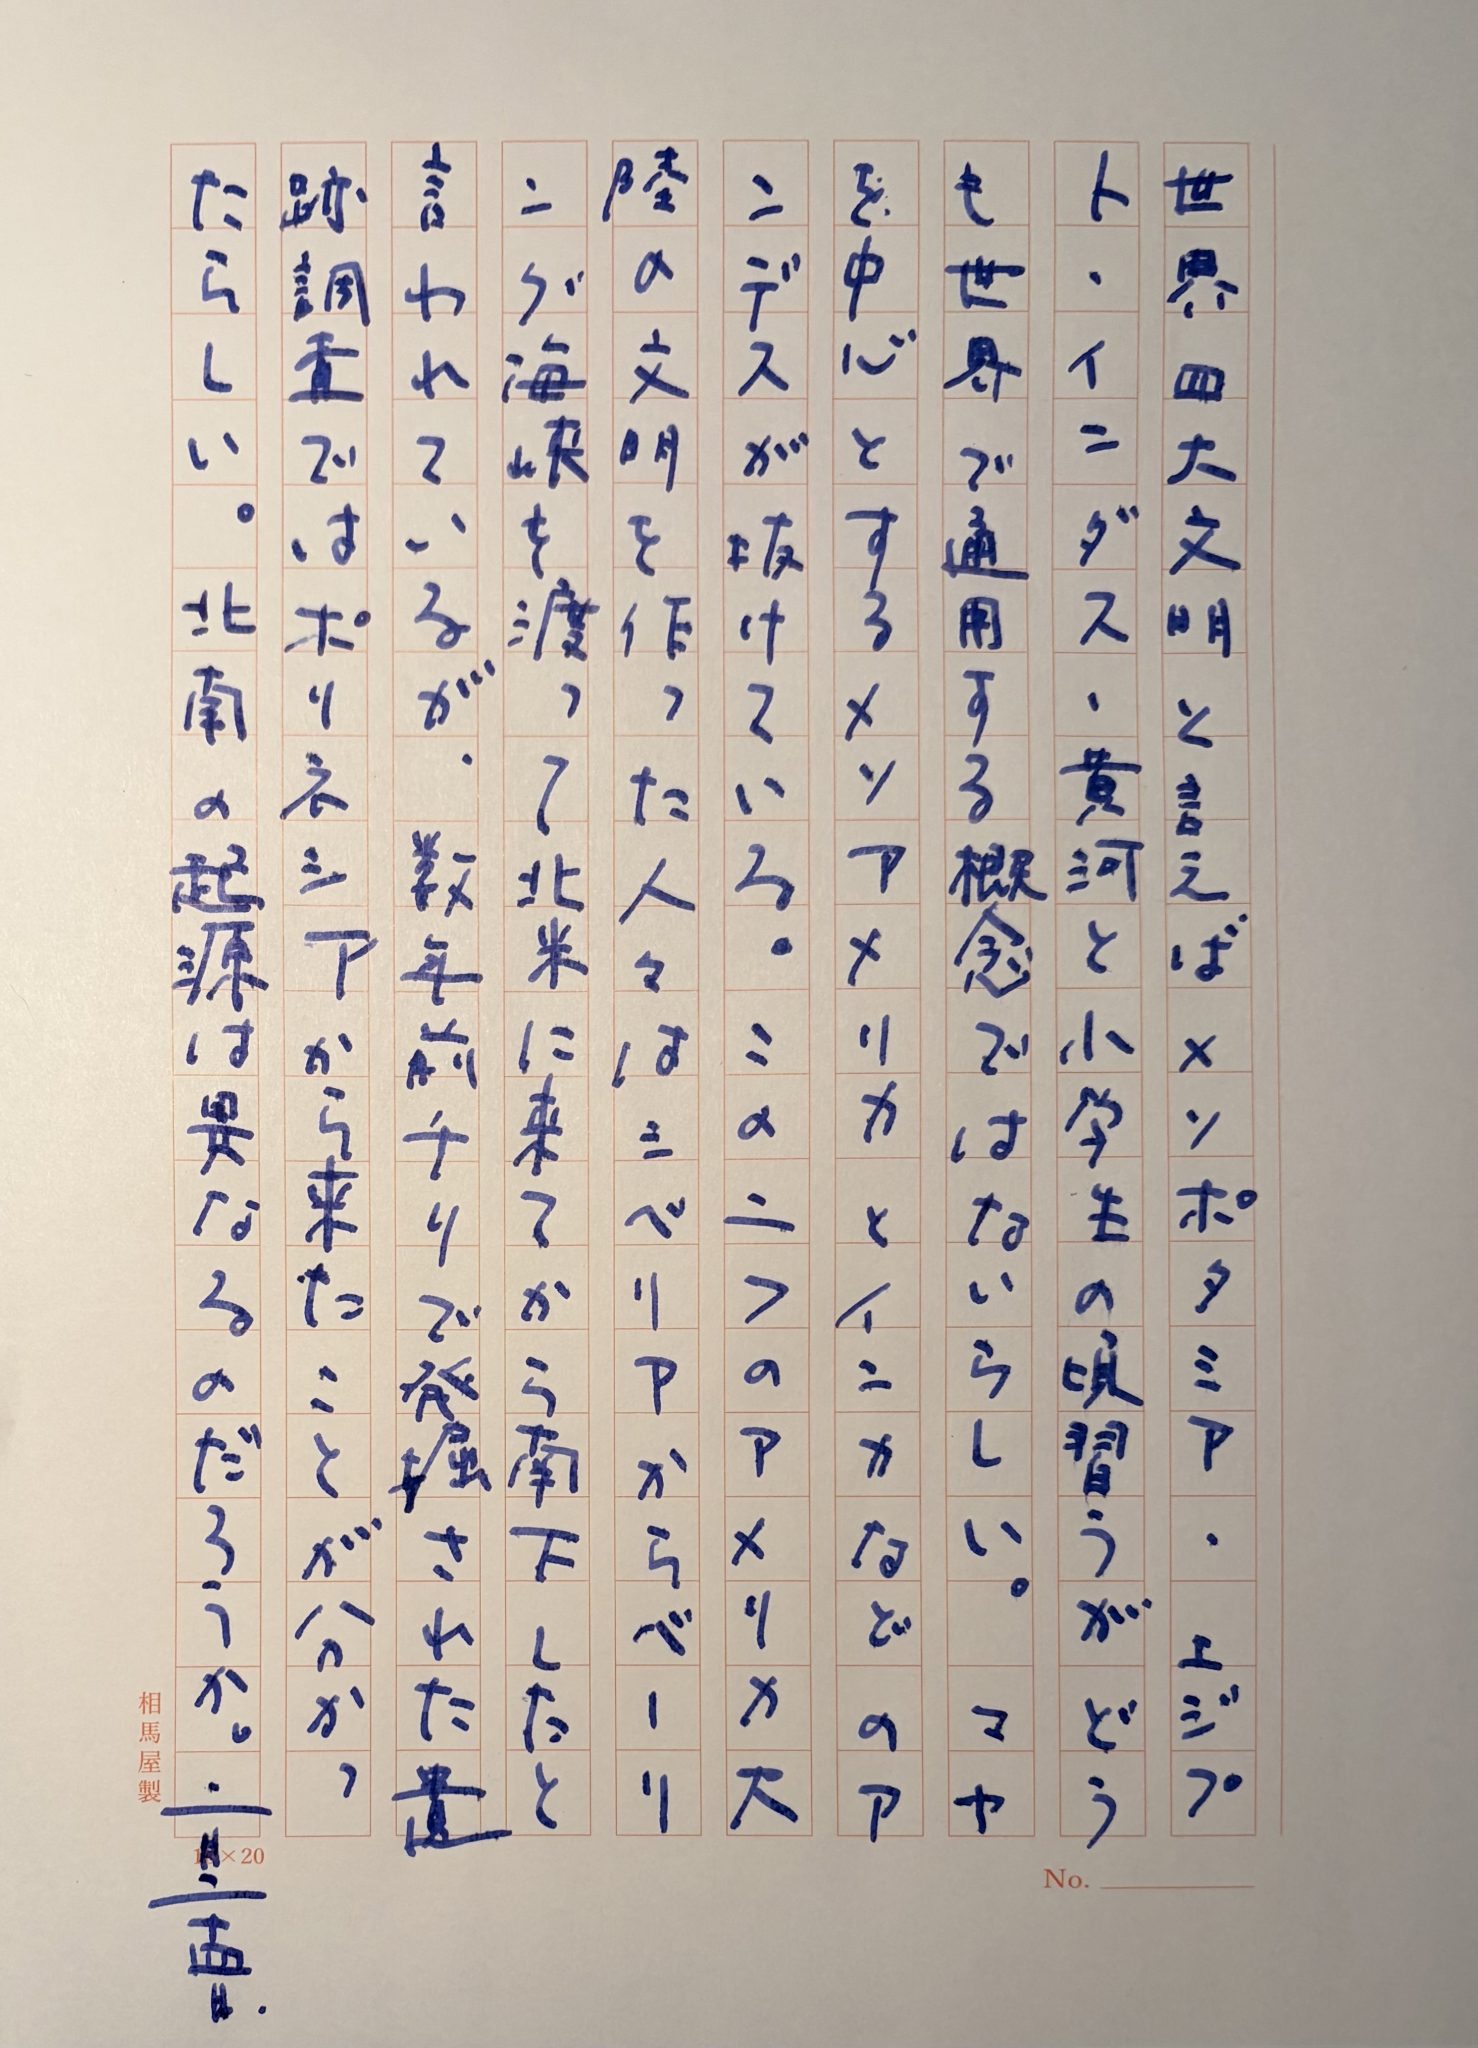 世界四大文明と言えばメソポタミア・エジプ
ト・インダス・黄河と小学生の頃習うがどう
も世界で通用する概念ではないらしい。マヤ
を中心とするメソアメリカとインカなどのア
ンデスが抜けている。このニつのアメリカ大
陸の文明を作った人々はシベリアからベーリ
ング海峡を渡って北米に来てから南下したと
言われているが、数年前チリで発掘された遺
跡調査ではポリネシアから来たことが分かっ
たらしい。北南の起源は異なるのだろうか。
相馬屋製
×20
No.